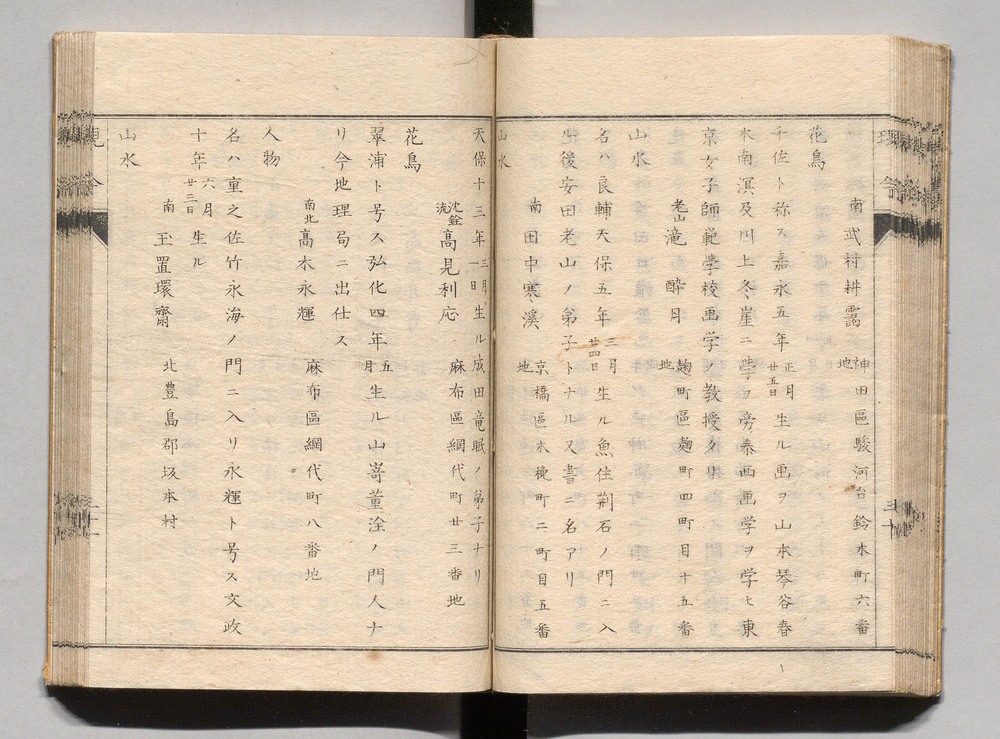 南 武村耕靄 神田區駿河台鈴木町六番地
花鳥
千佐ト祢ス嘉永五年正月廿五日生ル画ヲ山本琴谷春
木南溟及川上冬崖ニ学ヲ旁泰西画学ヲ学ヒ東
京女子師範学校画学ノ教授タリ
老山 滝酔月 麹町區麹町四町目十五番地
山水
名ハ良輔天保五年三月廿四日生ル魚住荆石ノ門ニ入
後安田老山ノ弟子トナル又書ニ名アリ
南 田中寒溪 京橋區木挽町二町目五番地
山水
天保十三年三月一日生ル成田竜眠ノ弟子ナリ
沈銓流 高見利応 麻布區綱代町廿三番地
花鳥
翠浦ト号ス弘化四年五月生ル山嵜董洤ノ門人ナ
リ今地理局ニ出仕ス
南北 高木永輝 麻布區綱代町八番地
人物
名ハ重之佐竹永海ノ門ニ入リ永輝ト号ス文政
十年六月廿三日生ル
南 玉置環齋 北豊島郡坂本村
山水